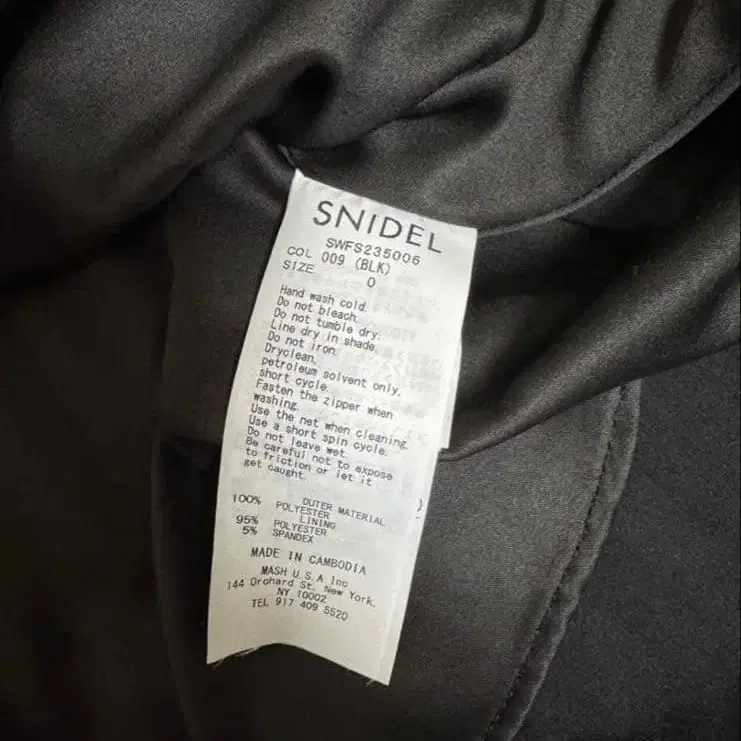 SNIDEL
SWFS235006
COL 009 (BLK)
SIZE 0
Hand wash cold.
Do not bleach.
Do not tumble dry.
Line dry in shade.
Do not iron.
Dryclean.
petroleum solvent only.
short cycle.
Fasten the zipper when
washing.
Use the net when cleaning.
Use a short spin cycle.
Do not leave wet.
Be careful not to expose
to friction or let it
get caught.
OUTER MATERIAL
100% POLYESTER
LINING
95% POLYESTER
5% SPANDEX
MADE IN CAMBODIA
MASH U.S.A Inc
144 Orchard St, New York,
NY 10002
TEL 917 409 5520